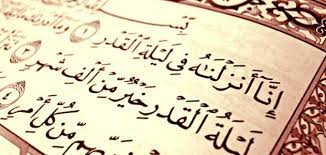 بِسْمِ
إِنَّا أَنزَلْنَٰهُ فِى لَيْلَةِ ٱلْقَدْرِ ١
لَيْلَةُ ٱلْقَدْرِ خَيْرٌ مِّنْ أَلْفِ شَهْرٍ
مِّن كُلِّ أَمْرٍ